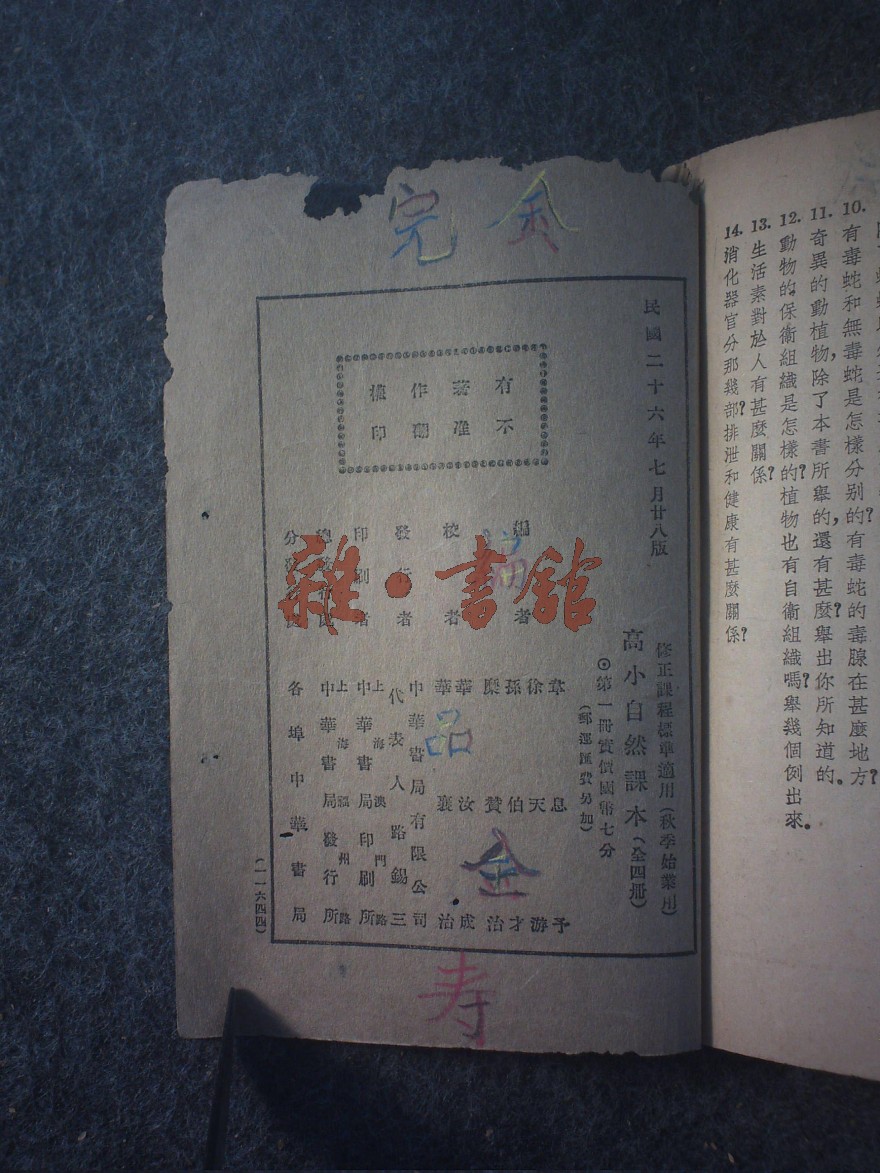 10. 有毒蛇和無毒蛇是怎樣分別的?有毒蛇的毒腺在甚麼地方?
11. 奇異的動植物,除了本書所舉的,還有甚麼?舉出你所知道的。
12. 動物的保衛組織是怎樣的?植物也有自衛組織嗎?舉幾個例出來。
13. 生活素對於人有甚麼關係?
14. 消化器官分那幾部?排泄和健康有甚麼關係?
完 金
民國二十六年七月廿八版
有著作權
不准翻印
修正課程標準適用(秋季始業用)
高小自然課本(全四冊)
⊙第一冊實價國幣七分
(郵運匯費另加)
編者
韋息予
徐天游
孫伯才
校者
糜贊治
華汝成
華襄治
發行者
中華書局有限公司
代表人路錫三
印刷者
上海澳門路
中華書局印刷所
總發行
上海福州路
中華書局發行所
分發
各埠中華書局
(一一六四四)
雜·書館
品
金
寿